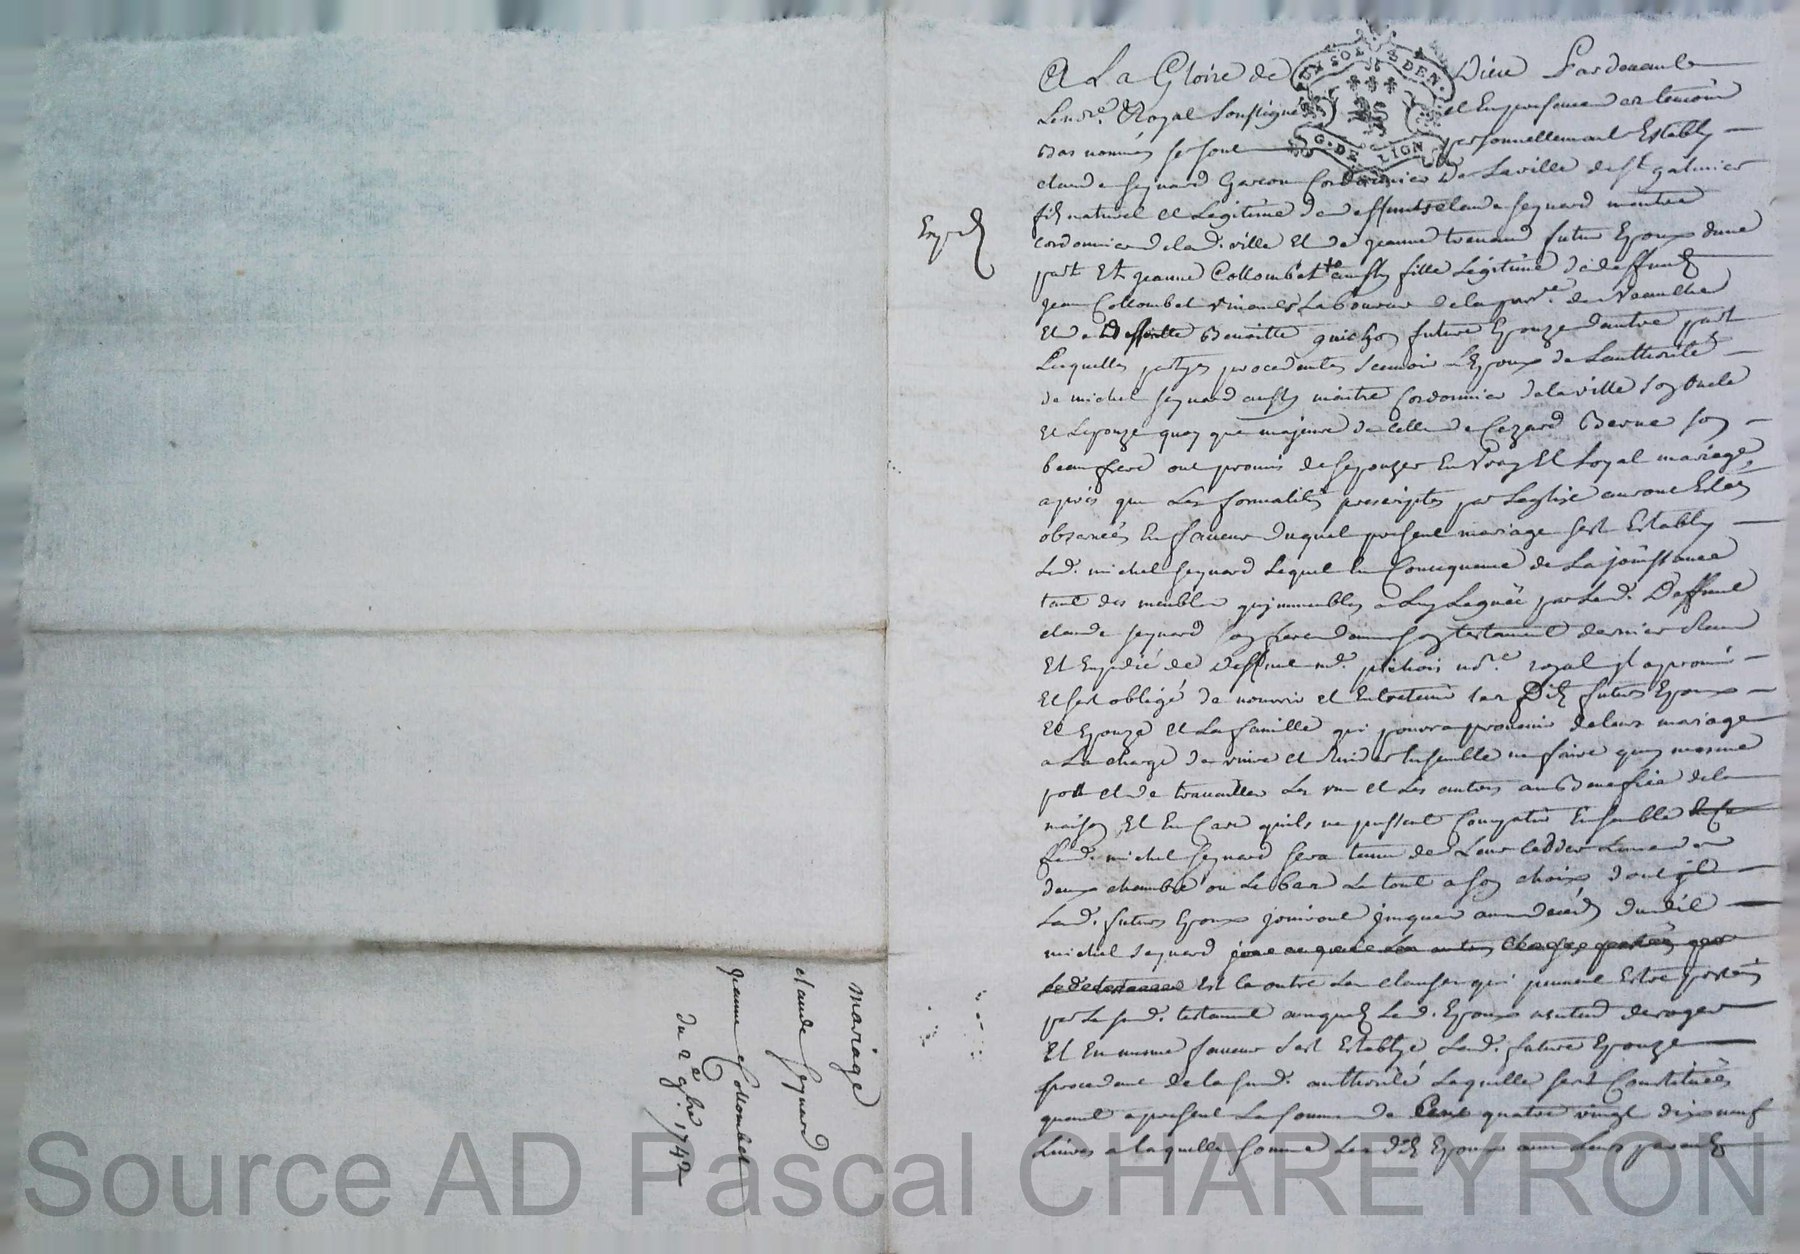 A La Gloire de Dieu Pardevant le
no.re Royal soussigné et En presence des temoins
Bas nommés se sont personnellement Establÿ
claude seynard Garcon Cordonnier de La ville de st galmier
fils naturel et Legitime de deffunt claude seynard maitre
cordonnier de lad. ville Et de jeanne futur Epoux dune
part Et jeanne Collombet aussy fille Legitime de deffunct
jean Collombet vivant Laboureur de la parr.e de Veauche
Et de deffunte Benoitte future Epouze dautre part
Lesquelles partyes procedantes scavoir L'Epoux de Lauthorité
de michel seynard aussy maitre Cordonnier de la ville son oncle
Et L'epouze quoy que majeure de celle de Cezard Berne son
beau frere ont promis de sepouzer En vray Et Loyal mariage
apres que Les formalités prescriptes par Leglise auront Estés
observées En faveur duquel present mariage sest Establÿ
Led. michel seynard Lequel En Consequence de La joüissance
tant des meubles qu'immeubles a Luy Leguée par Led. Deffunt
claude seynard son frere dans son testament dernier
Et Expedié de Deffunt me. pichois no.re royal il a promis
Et sest obligé de nourrir et Entretenir les dits futurs Epoux
Et Epouze et La famille qui pourra provenir de leur mariage
a La charge de vivre et Ensemble ne faire quun mesme
pott et de travailler Les uns et Les autres au Benefice de la
maison Et En Cas quils ne pussent Compatir Ensemble
Led. michel seynard sera tenu de Leur cedder Lune des
deux chambre ou Le bas Le tout a son choix dont
Les d. futurs Epoux joüiront jusques au deces dudit
michel seynard
Et ce outre Les clauses qui peuvent Estre portées
par Le susd. testament auxquels Led. Epoux deroger
Et En mesme faveur sest Establye Lad. future Epouze
procedant de la susd. authorité Laquelle sest Constituée
quant a present La somme de Cent quatre vingt dix neuf
Livres a laquelle somme Les dits Epoux
mariage
claude seynard
jeanne Collombet
du 2e 9bre 1742
G. DE LION
Source AD Pascal CHAREYRON